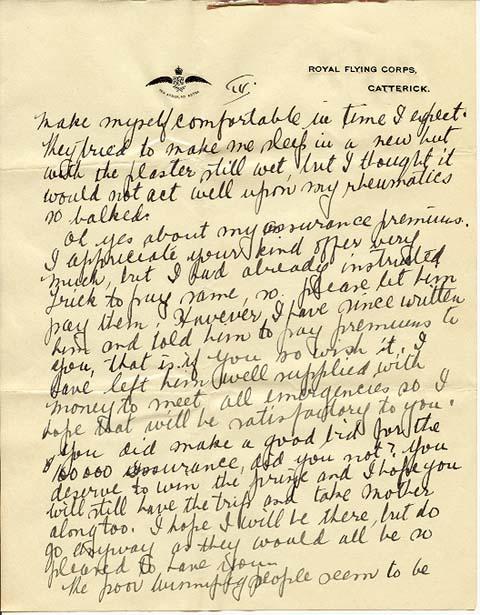 ROYAL FLYING CORPS,
CATTERICK.
IV.
make myself comfortable in time I expect.
They tried to make me sleep in a new hut
with the plaster still wet, but I thought it
would not act well upon my rheumatics
so balked.
Oh yes about my assurance premiums.
I appreciate your kind offer very
much, but I had already instructed
to pay same, so please let him
pay them; However, I have since written
him and told him to pay premiums to
you, that is if you so wish it. I
have left him well supplied with
money to meet all emergencies so I
hope that will be satisfactory to you.
You did make a good bid for the
assurance, did you not? You
deserve to win the prize and I hope you
will still have the trip and take mother
along too. I hope I will be there, but do
go anyway as they would all be so
pleased to have you.
The poor Winnipeg people seem to be